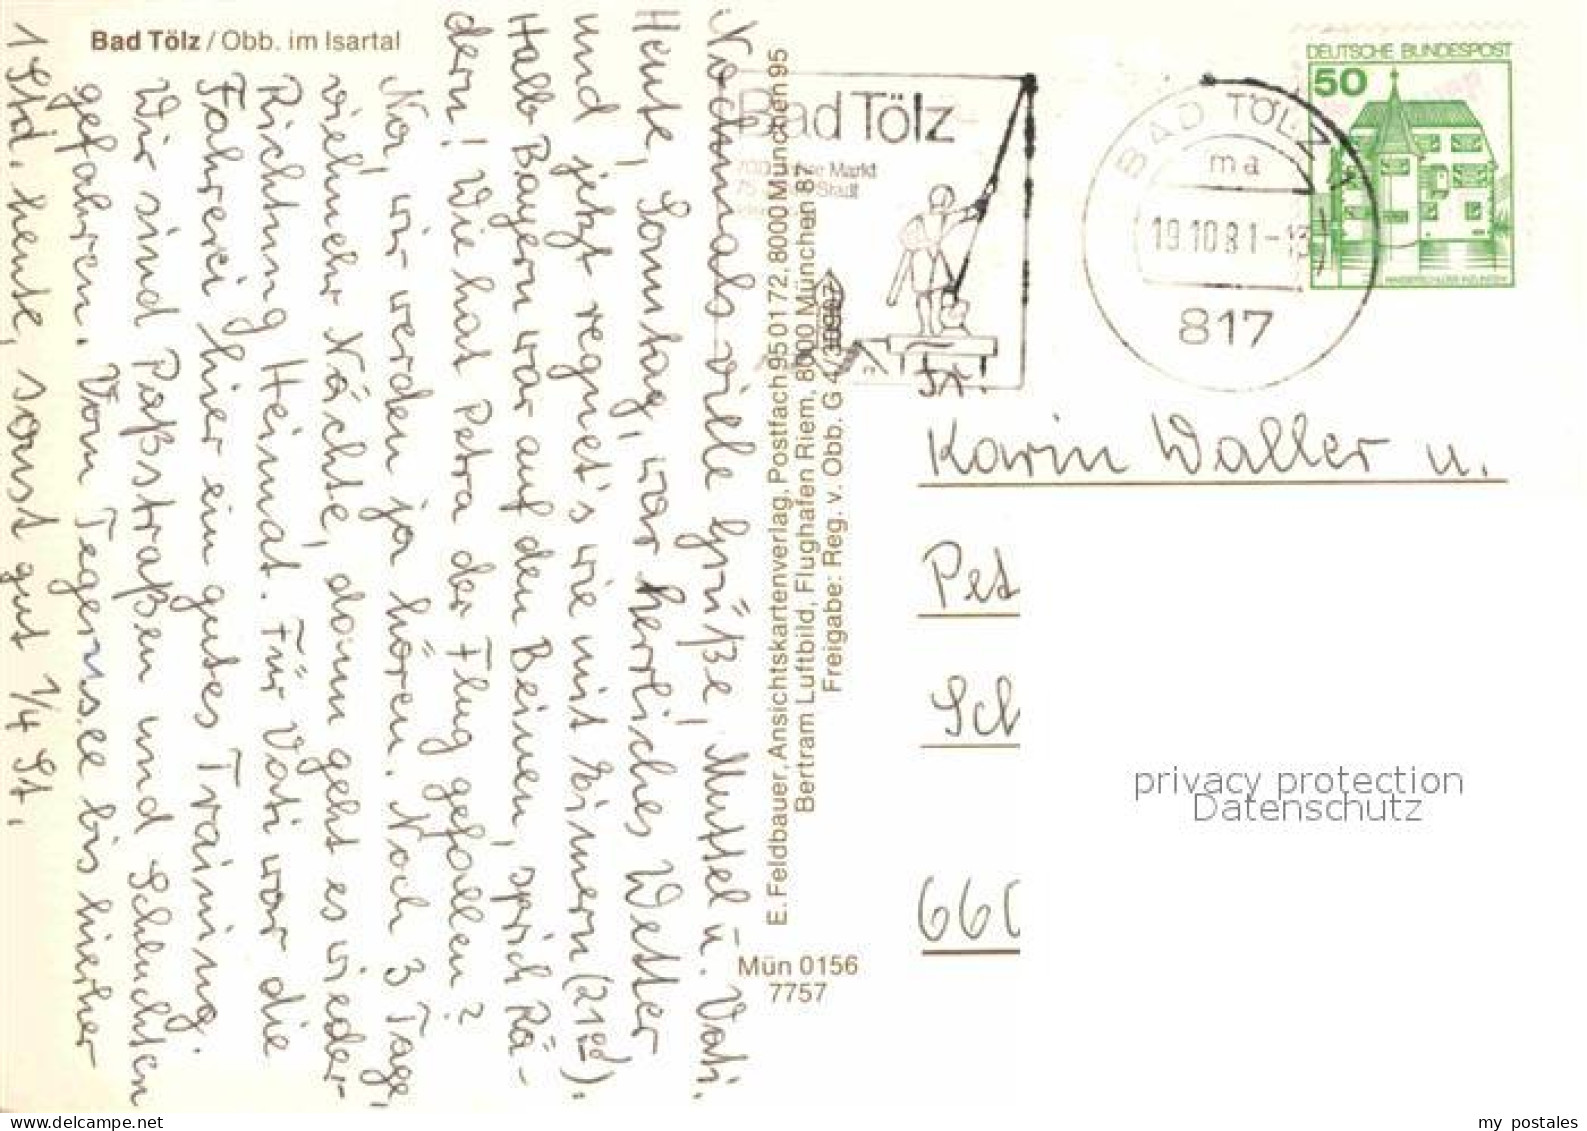 Bad Tölz / Obb. im Isartal
Nochmals viele Grüße, Muttel u. Vati.
Heute, Sonntag, war herrliches Wetter
und jetzt regnet's wie mit Eimern (21 ).
Halb Bayern war auf den Beinen, sprich Rä-
dern! Wie hat Petra der Flug gefallen?
Na, wir werden ja hören. Noch 3 Tage,
vielmehr Nächte, dann geht es wieder
Richtung Heimat. Für Vati war die
Fahrerei hier ein gutes Training.
Wir sind Paßstraßen und Schluchten
gefahren. Vom Tegernsee bis hierher
1 Std. heute, sonst gut 1/4 St.
E. Feldbauer, Ansichtskartenverlag, Postfach 95 01 72, 8000 München 95
Bertram Luftbild, Flughafen Riem, 8000 München 87
Freigabe: Reg. v. Obb. G 4/30907
Mün 0156
7757
Bad Tölz
700 Jahre Markt
75 Stadt
BAD TÖLZ 1
ma
19.10.81-13
817
DEUTSCHE BUNDESPOST
50
WASSERSCHLOSS INZLINGEN
Fr.
Karin Waller u.
Pet
Sch
660
privacy protection
Datenschutz
www.delcampe.net
my postales